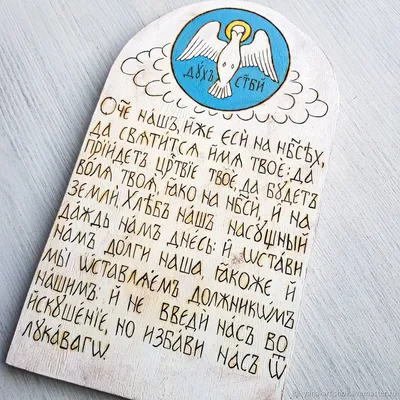 дꙋ́хъ ст҃ы́й
Ѻ҆́ч҃е нашъ, и҆́же є҆сѝ на нб҃сѣ́хъ,
да свѧти́тсѧ и҆́мѧ твоѐ: да
прїи́детъ ца́рствїе твоѐ, да бꙋ́детъ
во́лѧ твоѧ̀, ꙗ҆́кѡ на нб҃сѝ, и҆ на
землѝ, хлѣ́бъ нашъ насꙋ́щный
да́ждь на́мъ дне́сь: и҆ ѡ҆ста́ви
на́мъ до́лги на́ша, ꙗ҆́коже, и҆
мы̀ ѡ҆ставлѧ́емъ должникѡ́мъ
на́шимъ: и҆ не введѝ на́съ во
и҆скꙋше́нїе, но и҆зба́ви на́съ ѿ
лꙋка́вагѡ.